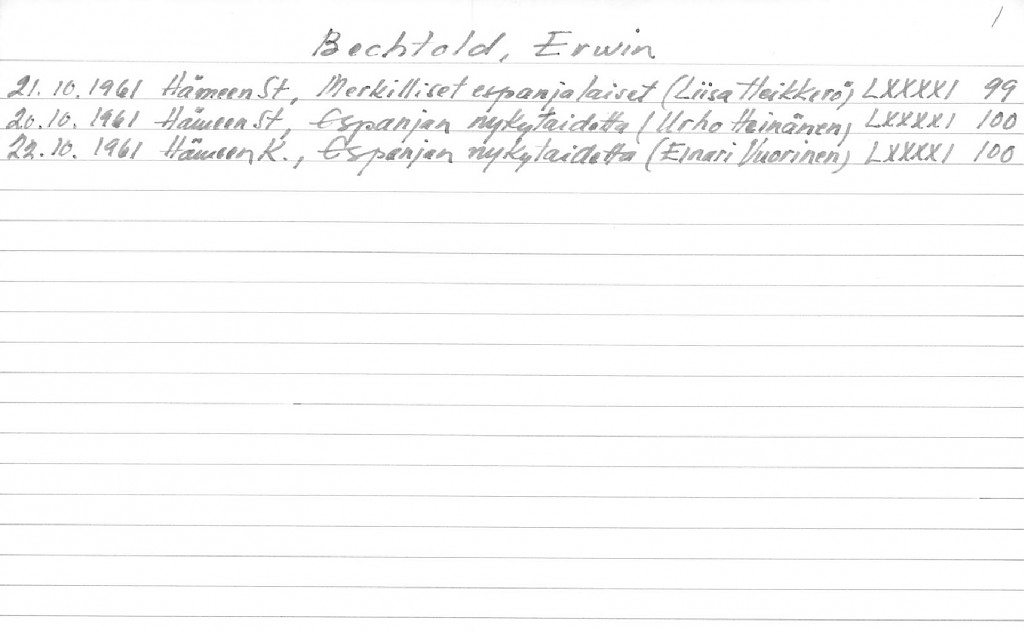 1
Bechtold, Erwin
21.10.1961 Hämeen St, Merkilliset espanjalaiset (Liisa Heikkerö) LXXXXI 99
20.10.1961 Hämeen St, Espanjan nykytaidetta (Urho Heinänen) LXXXXI 100
22.10.1961 Hämeen K., Espanjan nykytaidetta (Einari Vuorinen) LXXXXI 100